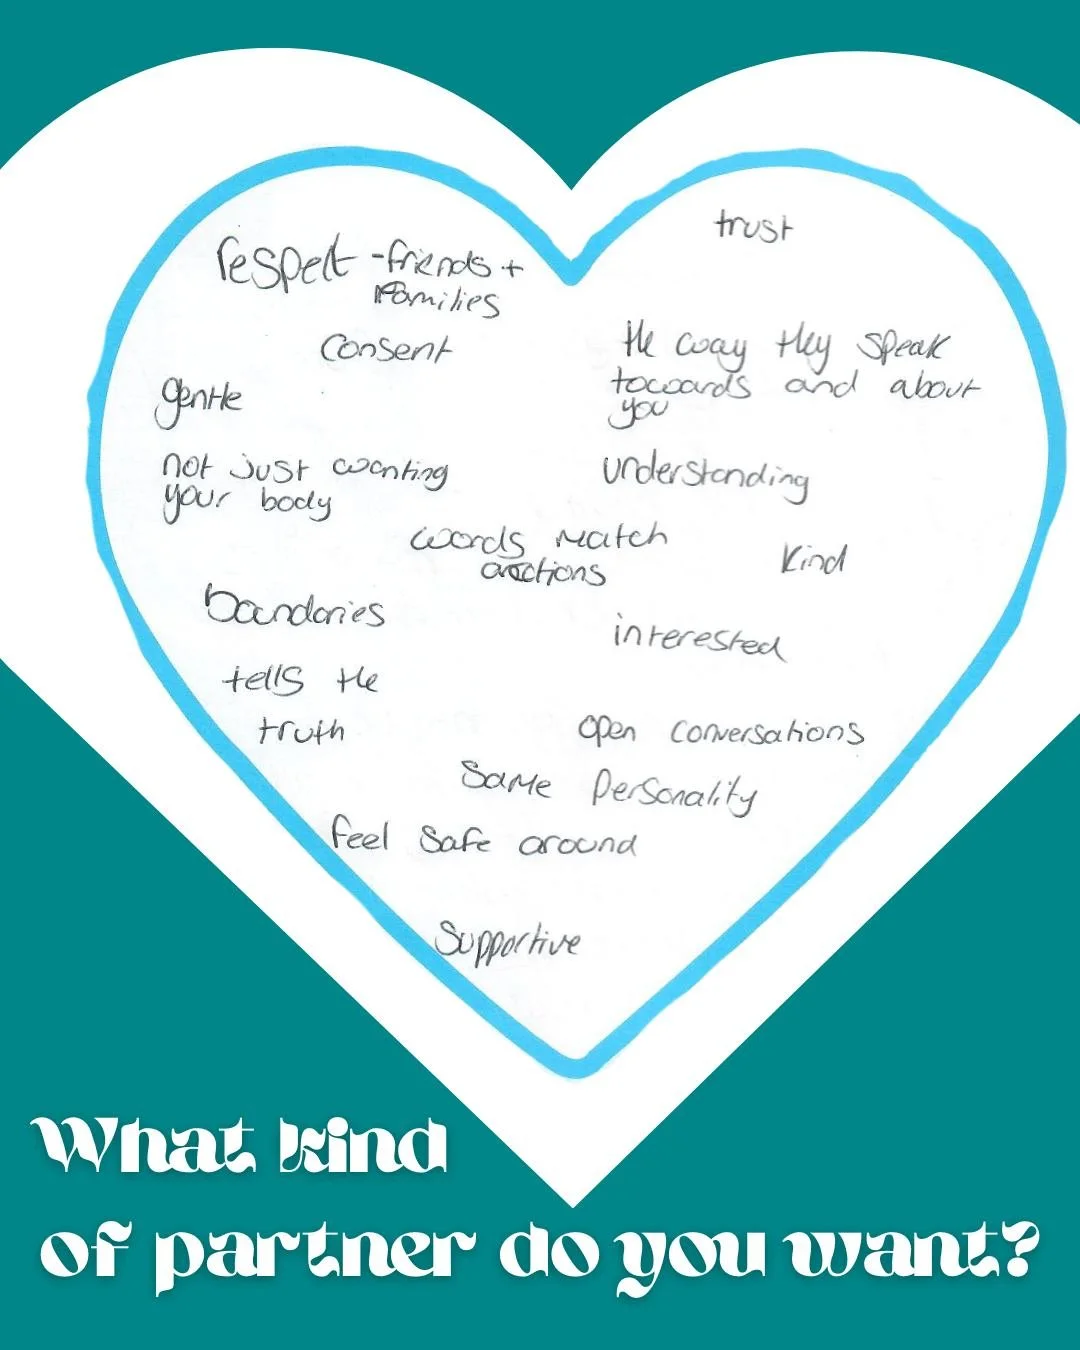 trust
respect - friends +
families
consent
the way they speak
towards and about
you
gentle
not just wanting
your body
understanding
words match
actions
kind
boundaries
interested
tells the
truth
open conversations
same personality
feel safe around
supportive
What kind
of partner do you want?